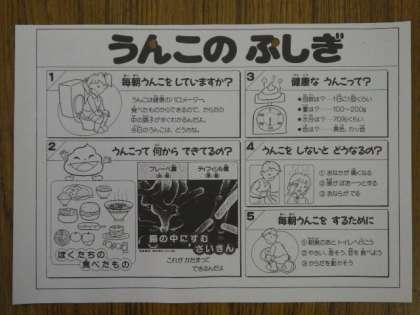 うんこの ふしぎ
1 毎朝うんこをしていますか?
うんこは健康のバロメーター。
食べたものからできるので、からだの
中の調子が多くわかるんだよ。
今日のうんこは、どうかな。
2 うんこって 何から できてるの?
ぼくたちの
食べたもの
腸の中にすむ
さいきん
これが かたまって
できるんだよ
3 健康な うんこって?
●回数は?…1日に1回くらい
●量は?……100~200g
●水分は?…70%くらい
●色は?……黄色、かっ色
4 うんこを しないと どうなるの?
① おなかが 痛くなる
② 頭が ぼおーっとする
③ おならが でる
5 毎朝うんこを するために
① 朝食のあと トイレへ行こう
② やさい、
③ からだを動かそう